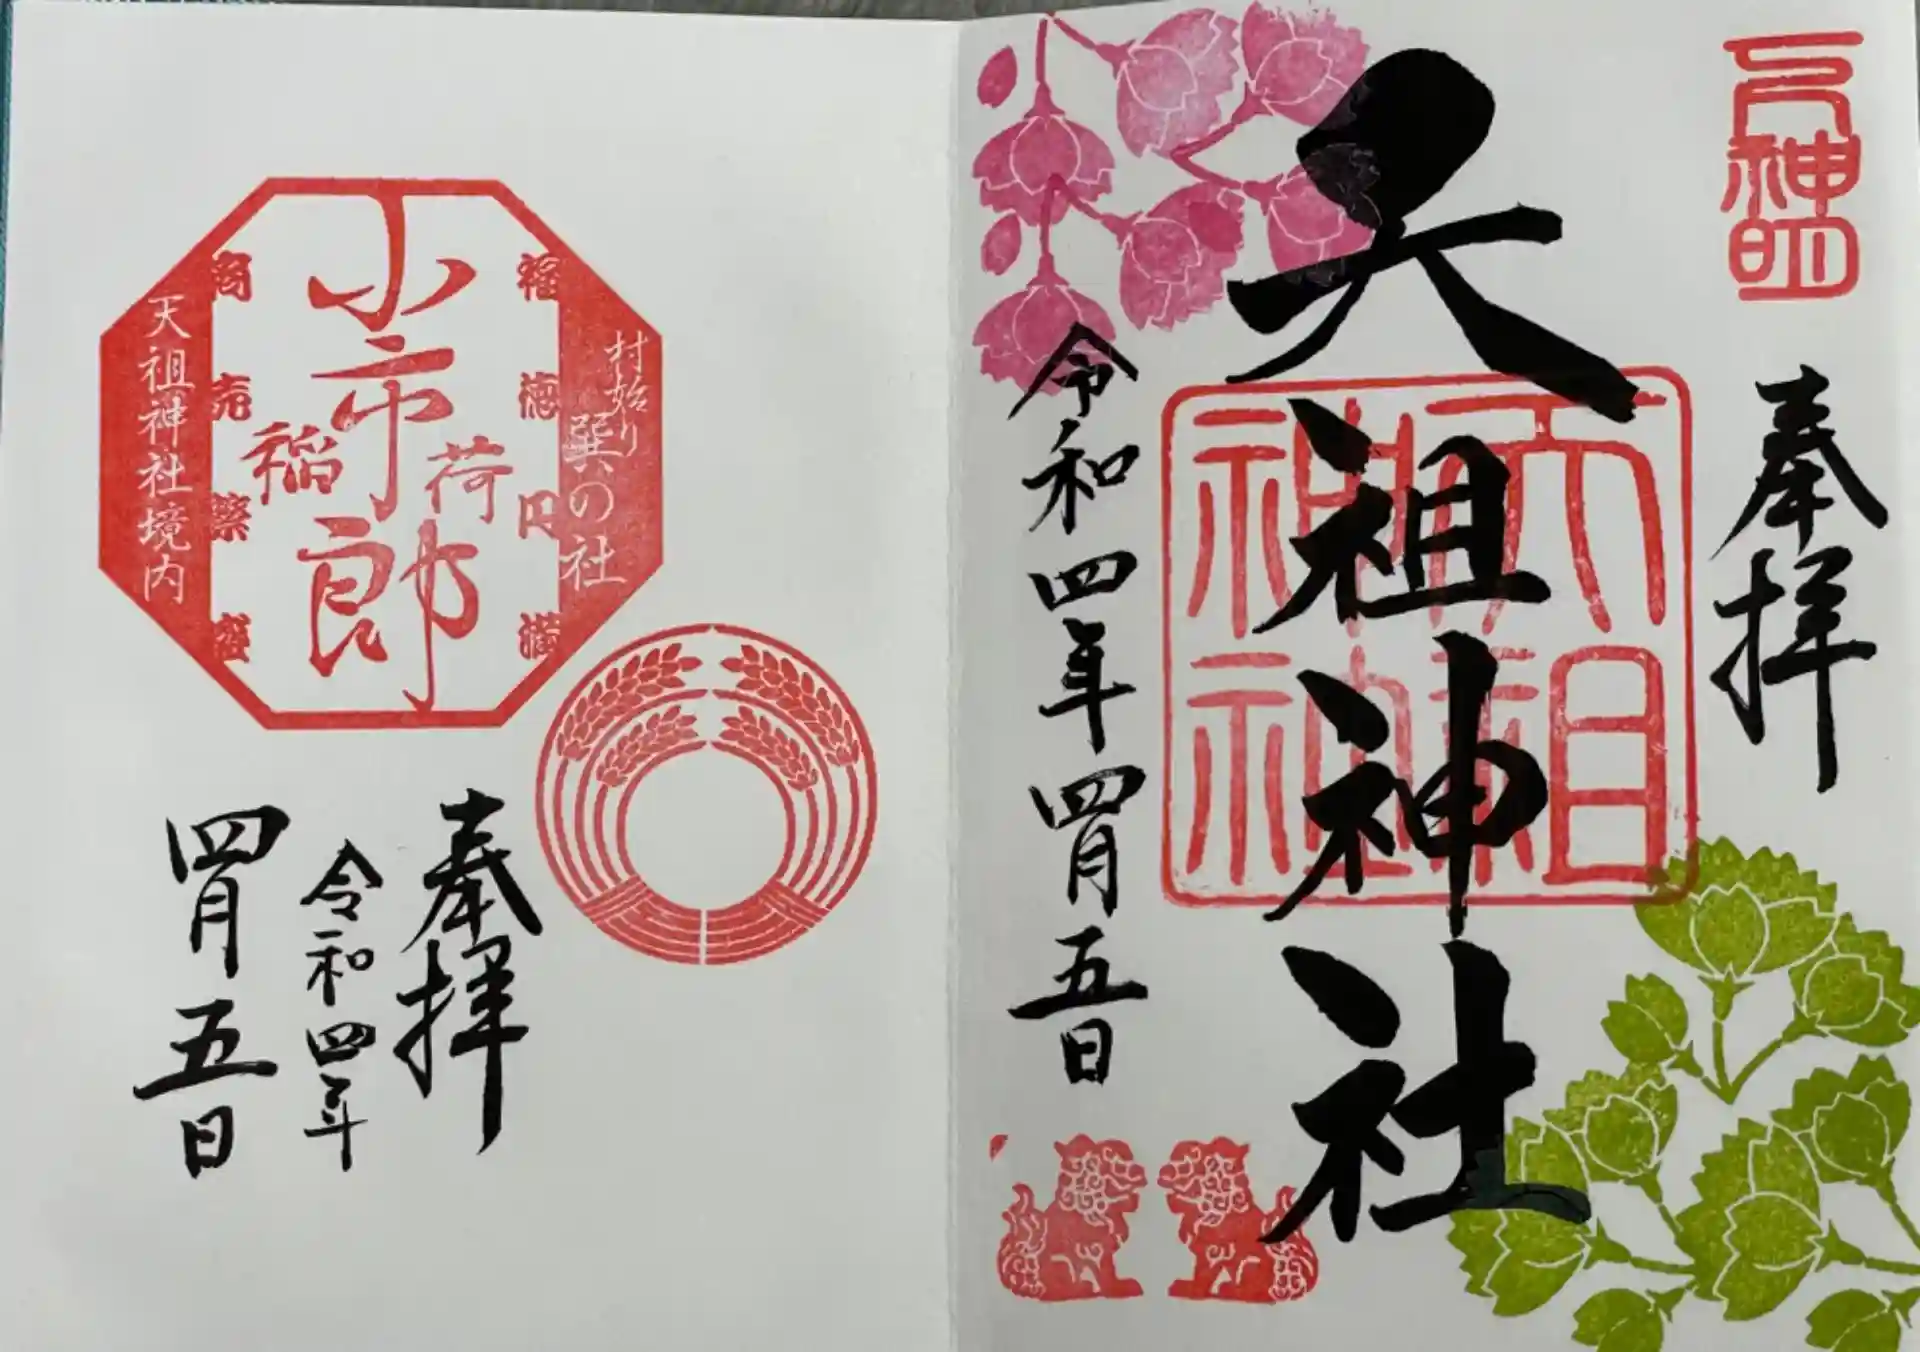 神明
奉拝
天祖神社
天祖
神社
令和四年四月五日
村始り
巽の社
福徳円満
小市郎
稲荷
商売繁盛
天祖神社境内
奉拝
令和四年
四月五日